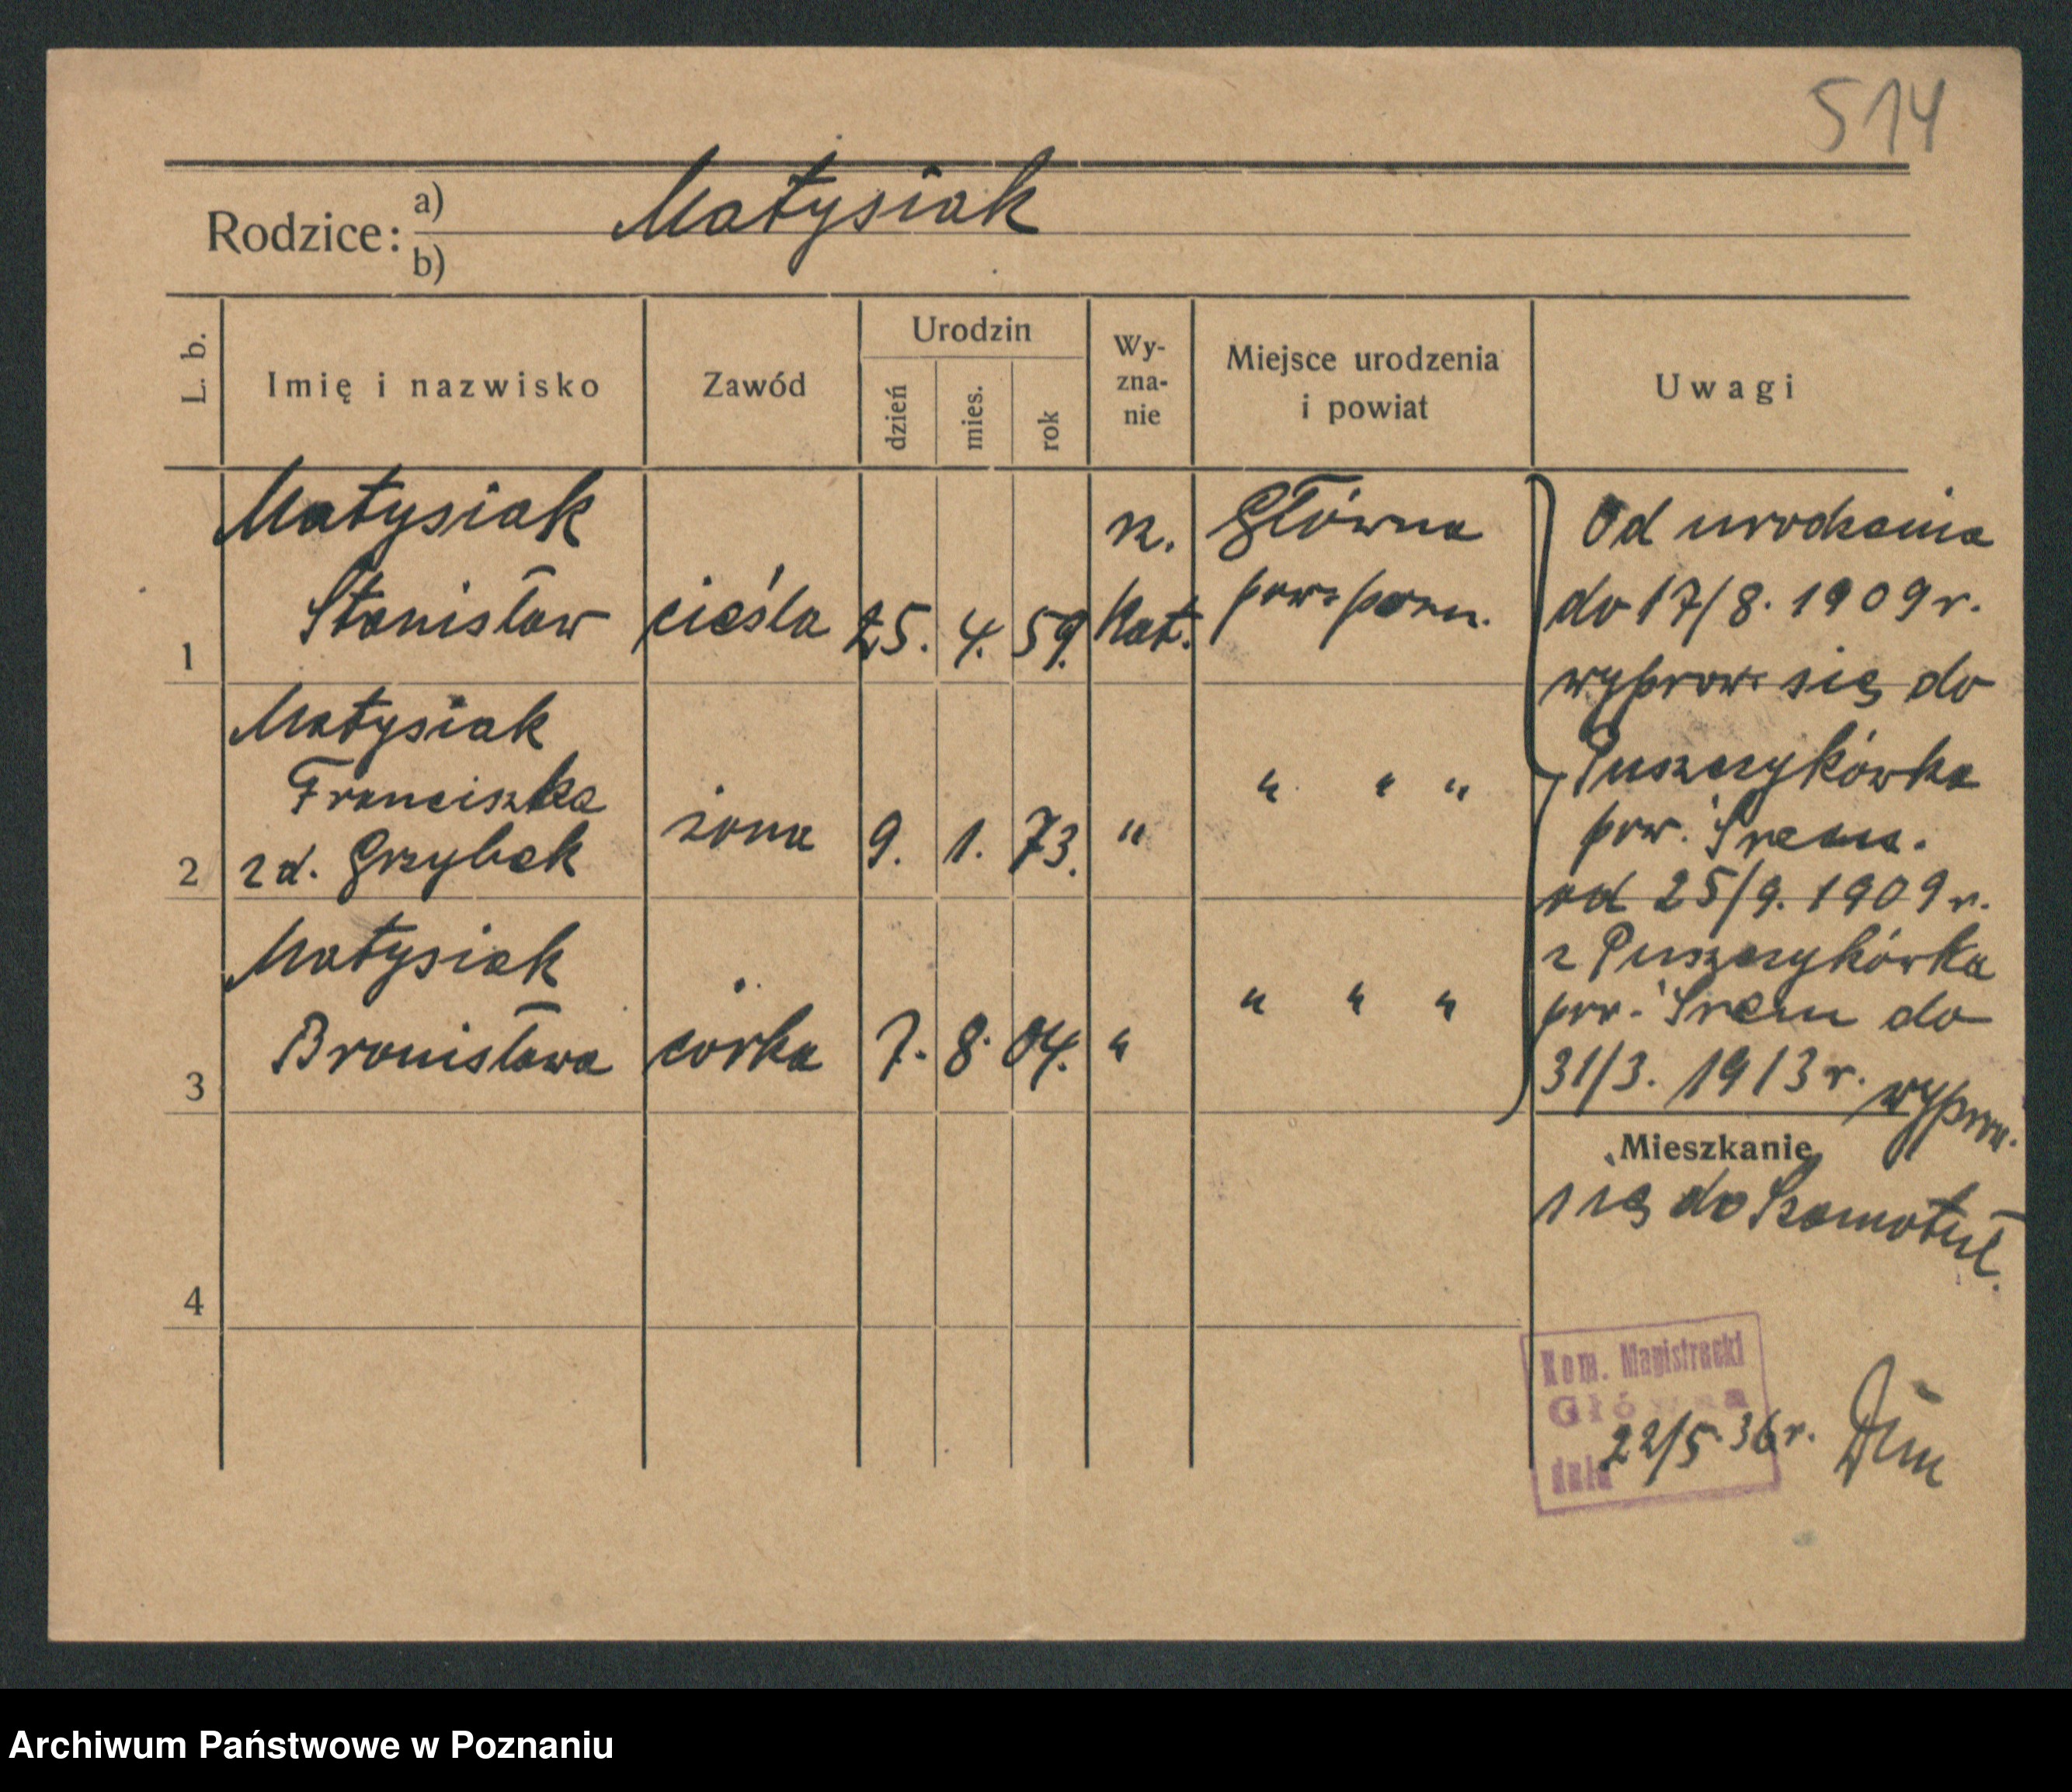 514
Rodzice: a) Matysiak
b)
L. b. Imię i nazwisko Zawód Urodzin dzień mies. rok Wy-zna-nie Miejsce urodzenia i powiat Uwagi
Matysiak
Stanisław
1 cieśla 25. 4. 59. rz. Kat. Główna
pow. pozn.
Matysiak
Franciszka
2 zd. Grzybek żona 9. 1. 73. " " " "
Matysiak
Bronisława
3 córka 7. 8. 04. " " " "
4
Od urodzenia
do 17/8. 1909 r.
wyprow. się do
Puszczykówka
pow. Śrem.
od 25/9. 1909 r.
z Puszczykówka
pow. Śrem do
31/3. 1913 r. wyprow.
Mieszkanie
się do Szamotuł.
Kom. Magistracki
Główna
dnia 22/5. 36 r.
Archiwum Państwowe w Poznaniu